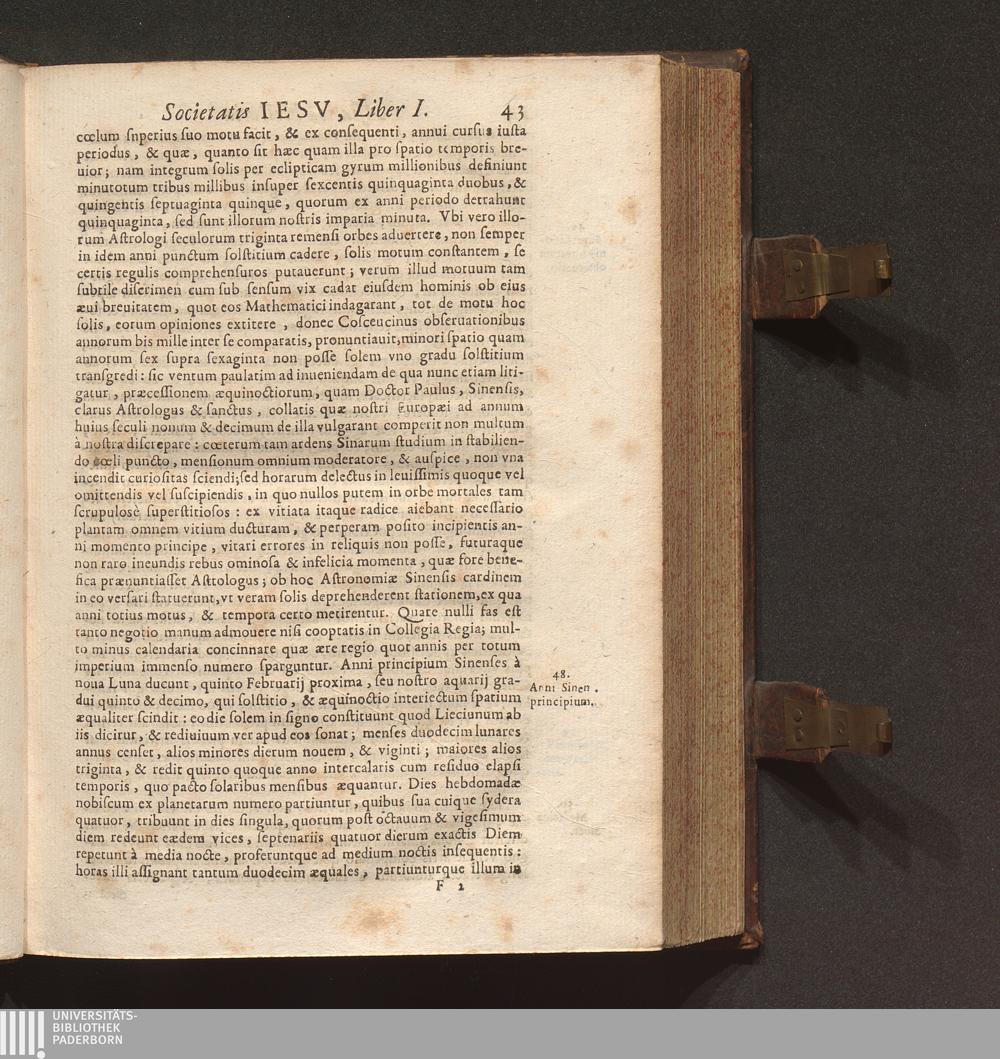 Societatis IESV, Liber I. 43
cœlum ſnperius ſuo motu facit, & ex conſequenti, annui curſus iuſta
periodus, & quæ, quanto ſit hæc quam illa pro ſpatio temporis bre-
uior; nam integrum ſolis per eclipticam gyrum millionibus definiunt
minutotum tribus millibus inſuper ſexcentis quinquaginta duobus, &
quingentis ſeptuaginta quinque, quorum ex anni periodo detrahunt
quinquaginta, ſed ſunt illorum noſtris imparia minuta. Vbi vero illo-
rum Aſtrologi ſeculorum triginta remenſi orbes aduertere, non ſemper
in idem anni punctum ſolſtitium cadere, ſolis motum conſtantem, ſe
certis regulis comprehenſuros putauerunt; verum illud motuum tam
ſubtile diſcrimen cum ſub ſenſum vix cadat eiuſdem hominis ob eius
æui breuitatem, quot eos Mathematici indagarant, tot de motu hoc
ſolis, eorum opiniones extitere, donec Coſceucinus obſeruationibus
annorum bis mille inter ſe comparatis, pronuntiauit, minori ſpatio quam
annorum ſex ſupra ſexaginta non poſſe ſolem vno gradu ſolſtitium
tranſgredi: ſic ventum paulatim ad inueniendam de qua nunc etiam liti-
gatur, præceſſionem æquinoctiorum, quam Doctor Paulus, Sinenſis,
clarus Aſtrologus & ſanctus, collatis quæ noſtri Europæi ad annum
huius ſeculi nonum & decimum de illa vulgarant comperit non multum
à noſtra diſcrepare: cœterum tam ardens Sinarum ſtudium in ſtabilien-
do cœli puncto, menſionum omnium moderatore, & auſpice, non vna
incendit curioſitas ſciendi; ſed horarum delectus in leuiſſimis quoque vel
omittendis vel ſuſcipiendis, in quo nullos putem in orbe mortales tam
ſcrupulosè ſuperſtitioſos: ex vitiata itaque radice aiebant neceſſario
plantam omnem vitium ducturam, & perperam poſito incipientis an-
ni momento principe, vitari errores in reliquis non poſſe, futuraque
non raro ineundis rebus ominoſa & infelicia momenta, quæ fore bene-
fica prænuntiaſſet Aſtrologus; ob hoc Aſtronomiæ Sinenſis cardinem
in eo verſari ſtatuerunt, vt veram ſolis deprehenderent ſtationem, ex qua
anni totius motus, & tempora certo metirentur. Quare nulli fas eſt
tanto negotio manum admouere niſi cooptatis in Collegia Regia; mul-
to minus calendaria concinnare quæ ære regio quot annis per totum
imperium immenſo numero ſparguntur. Anni principium Sinenſes à
noua Luna ducunt, quinto Februarij proxima, ſeu noſtro aquarij gra-
dui quinto & decimo, qui ſolſtitio, & æquinoctio interiectum ſpatium
æqualiter ſcindit: eo die ſolem in ſigno conſtituunt quod Lieciunum ab
iis dicirur, & rediuiuum ver apud eos ſonat; menſes duodecim lunares
annus cenſet, alios minores dierum nouem, & viginti; maiores alios
triginta, & redit quinto quoque anno intercalaris cum reſiduo elapſi
temporis, quo pacto ſolaribus menſibus æquantur. Dies hebdomadæ
nobiſcum ex planetarum numero partiuntur, quibus ſua cuique ſydera
quatuor, tribuunt in dies ſingula, quorum poſt octauum & vigeſimum
diem redeunt eædem vices, ſeptenariis quatuor dierum exactis Diem
repetunt à media nocte, proferuntque ad medium noctis inſequentis:
horas illi aſſignant tantum duodecim æquales, partiunturque illum in
F 2
48.
Anni Sinen.
principium.
UNIVERSITÄTS-
BIBLIOTHEK
PADERBORN